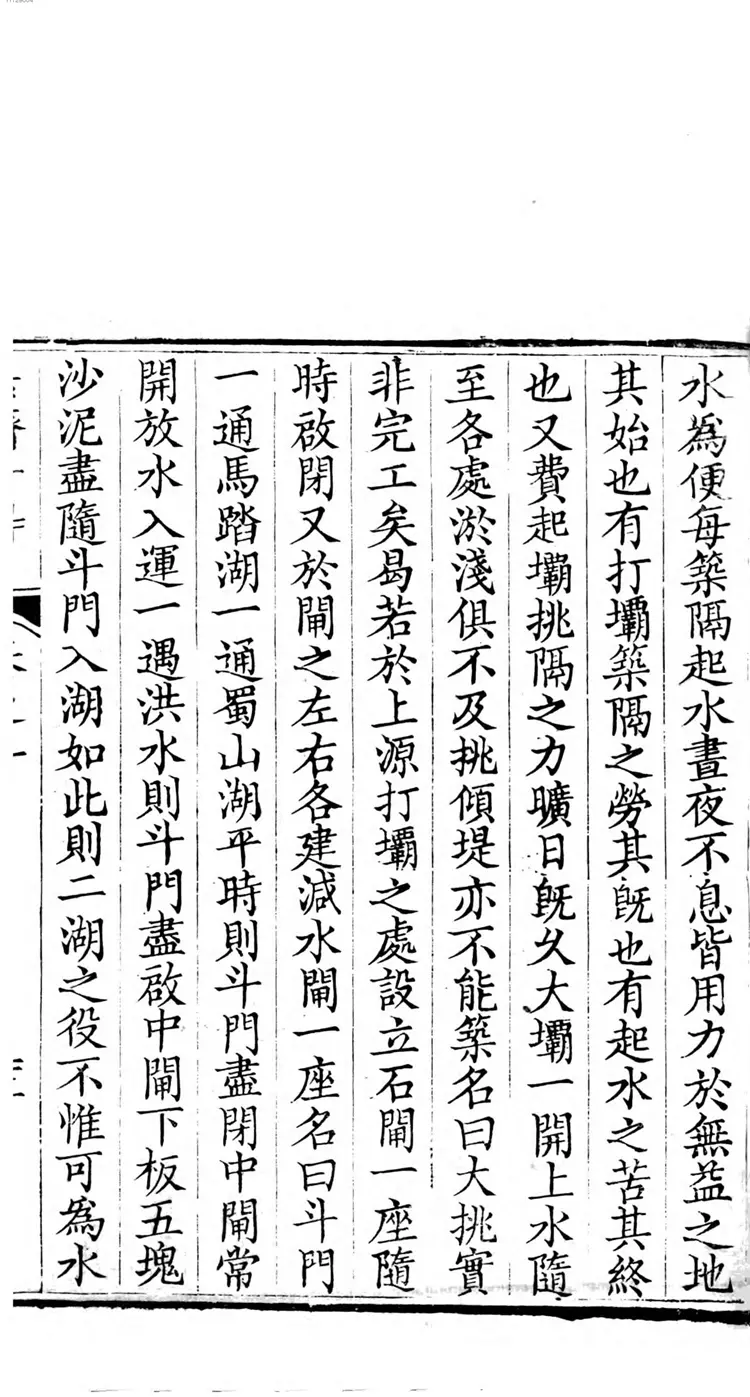 水為便每築隔起水晝夜不息皆用力於無益之地
其始也有打壩築隔之勞其旣也有起水之苦其終
也又費起壩挑隔之力曠日旣久大壩一開上水隨
至各處淤淺俱不及挑傾堤亦不能築名曰大挑實
非完工矣曷若於上源打壩之處設立石閘一座隨
時啟閉又於閘之左右各建減水閘一座名曰斗門
一通馬踏湖一通蜀山湖平時則斗門盡閉中閘常
開放水入運一遇洪水則斗門盡啟中閘下板五塊
沙泥盡隨斗門入湖如此則二湖之役不惟可為水